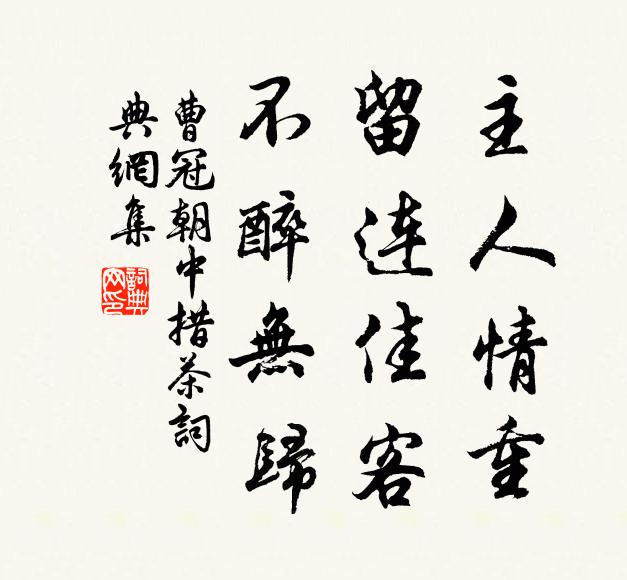 主人情重
留連佳客
不醉無歸
曹冠朝中措茶詞
典網集
詞典網印